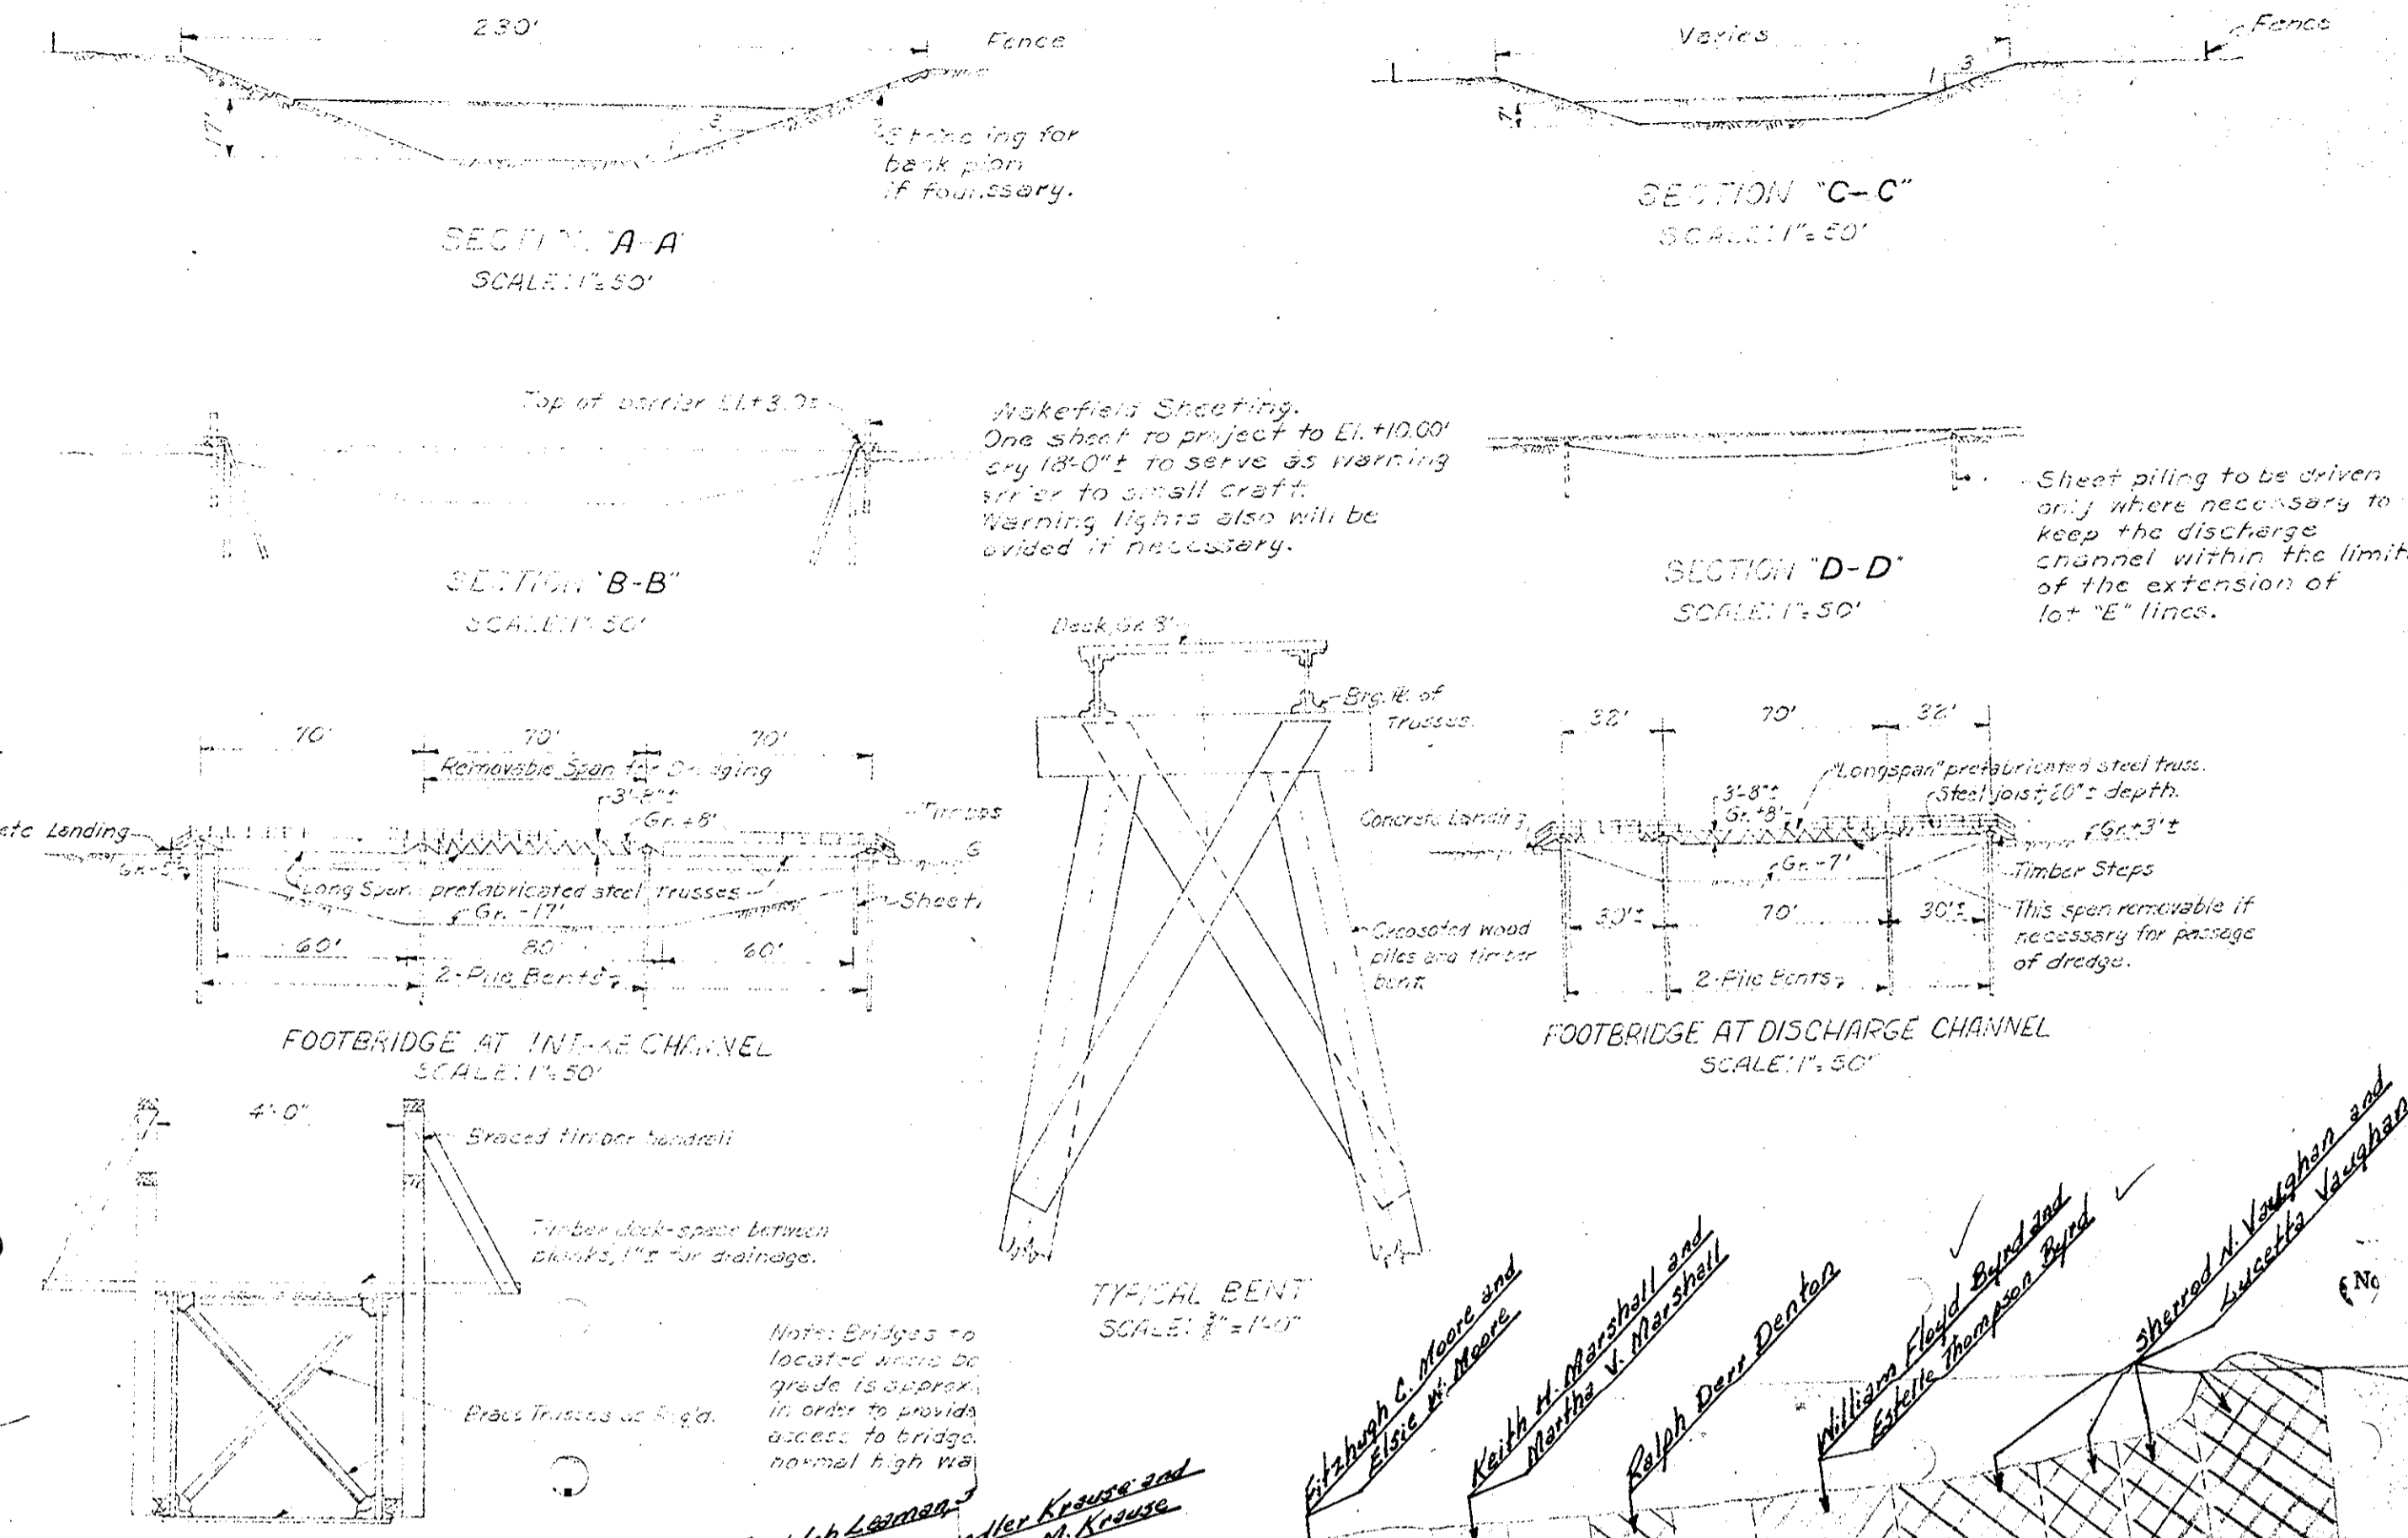 230'
Fence
17'
3
1
bank plan
if
SECTION "A-A"
SCALE: 1"=50'
Varies
Fence
1
3
7'
SECTION "C-C"
SCALE: 1"=50'
Top of barrier El.+3.0±
SECTION "B-B"
SCALE: 1"=50'
Wakefield Sheeting.
One sheet to project to El. +10.00'
ery 18'-0"± to serve as warning
to small craft.
Warning lights also will be
ovided if necessary.
Sheet piling to be driven
only where necessary to
keep the discharge
channel within the limit
of the extension of
lot "E" lines.
SECTION "D-D"
SCALE: 1"=50'
70'
70'
70'
Removable Span for Dredging
3'-8"±
Gr.+8'
ete Landing
Long Span prefabricated steel Trusses
Gr. -17'
Sheeti
60'
80'
60'
2-Pile Bents
FOOTBRIDGE AT INTAKE CHANNEL
SCALE: 1"=50'
Deck, Gr. 8'
Brg. ℄ of
Trusses.
Creosoted wood
piles and timber
bent
TYPICAL BENT
SCALE: =1'-0"
32'
70'
32'
"Longspan" prefabricated steel truss.
Steel joist, 20"± depth.
3'-8"±
Gr.+8'
Concrete Landing
Gr.+3'±
Gr.-7'
Timber Steps
30'±
70'
30'±
This span removable if
necessary for passage
of dredge.
2-Pile Bents
FOOTBRIDGE AT DISCHARGE CHANNEL
SCALE: 1"=50'
4'-0"
Braced timber handrail
Timber deck-space between
planks, 1"± for drainage.
Brace Trusses as Req'd.
Note: Bridges to
located where ba
grade is approxi
in order to provide
access to bridge
normal high wa
Leaman, J
dler Krause and
M. Krause
Fitzhugh C. Moore and
Elsie W. Moore
Keith H. Marshall and
Martha V. Marshall
Ralph Derr Denton
William Floyd Byrd and
Estelle Thompson Byrd
Sherrod N. Vaughan and
Lucetta Vaughan
No